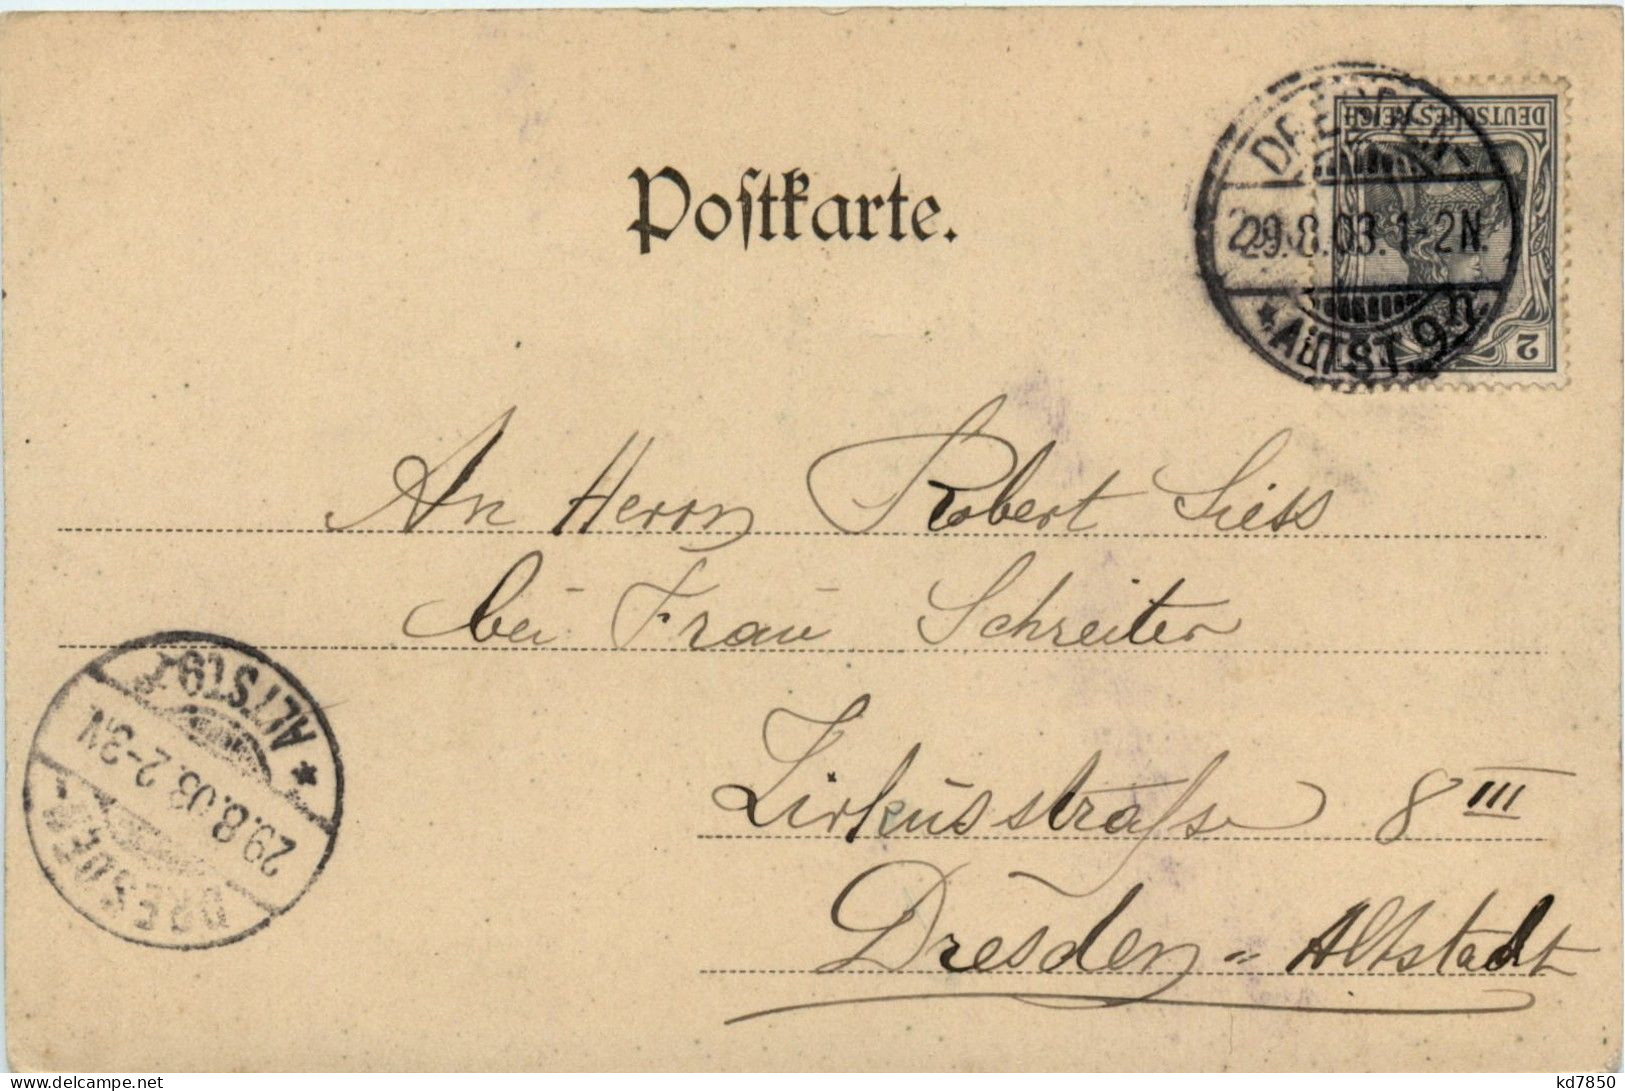 Postkarte.
DEUTSCHES REICH
2
DRESDEN-
29.8.03.1-2N.
* ALTST.9n.
An Herrn Robert Siess
bei Frau Schreiter
Zirkusstraße 8 III
Dresden-Altstadt
DRESDEN-
29.8.03.2-3N
* ALTST.9
kd7850